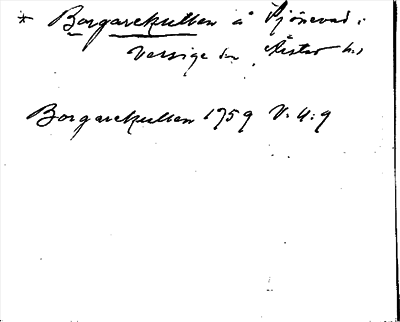 * Borgarekullen å Sjönevad i
Vessige sn, Årstad hd
Borgarekullen 1759 V: U: 9